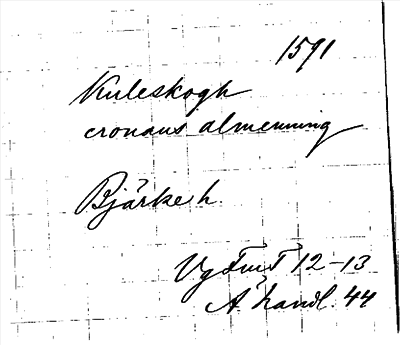 1591
Kuleskogh
cronans almenning
Bjärke h.
Vg FmT 12-13
Ä handl. 44